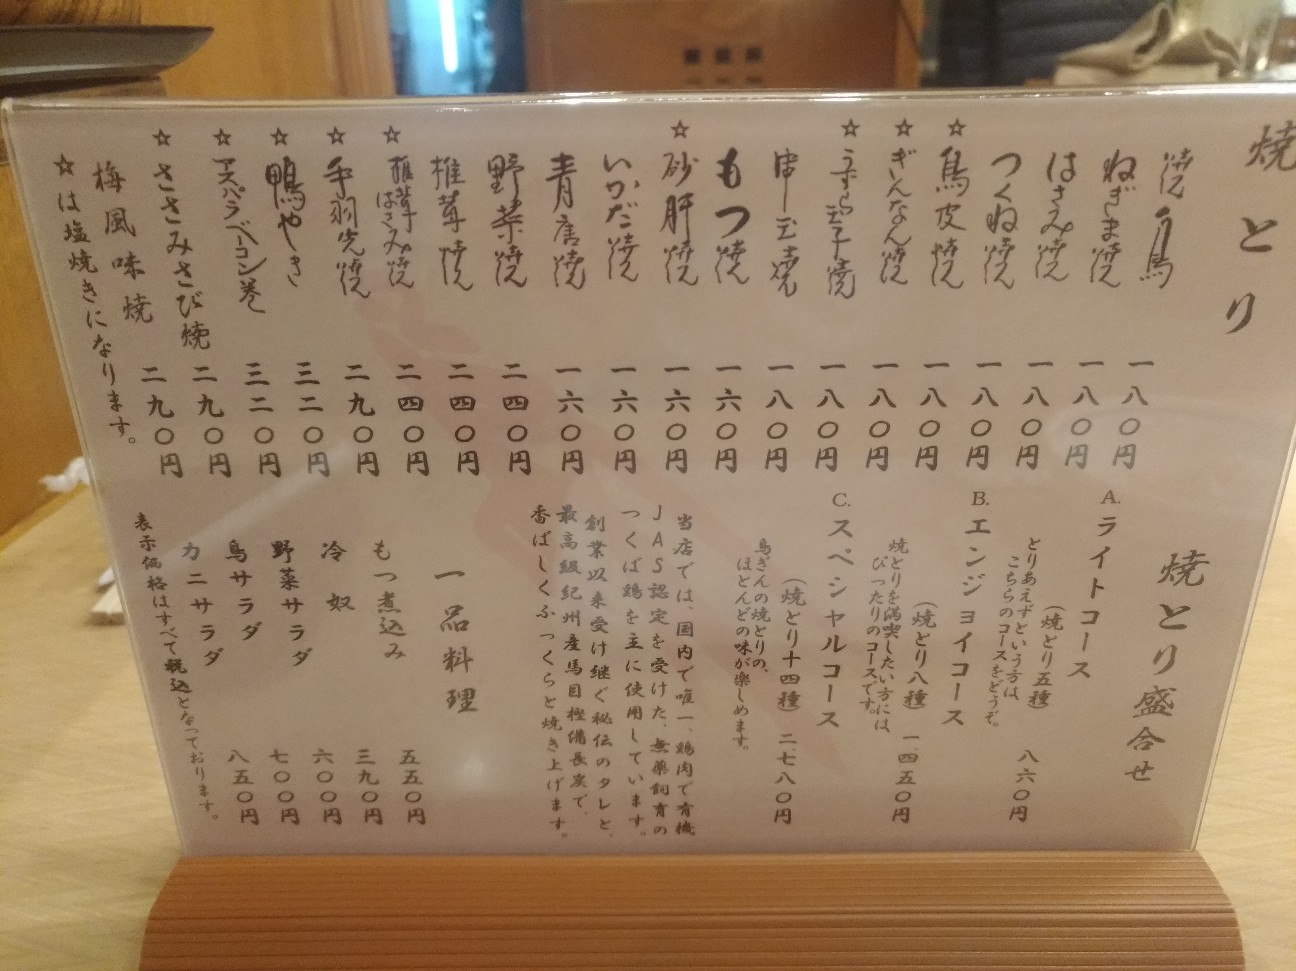 焼とり
焼う鳥 一八〇円
ねぎま焼 一八〇円
はさみ焼 一八〇円
つくね焼 一八〇円
☆鳥皮焼 一八〇円
☆ぎんなん焼 一八〇円
☆うずら玉子焼 一八〇円
串玉焼 一八〇円
もつ焼 一六〇円
☆砂肝焼 一六〇円
いかだ焼 一六〇円
青唐焼 一六〇円
野菜焼 二四〇円
椎茸焼 二四〇円
☆椎茸はさみ焼 二四〇円
☆手羽先焼 二九〇円
☆鴨やき 三二〇円
☆アスパラベーコン巻 三二〇円
☆ささみさび焼 二九〇円
梅風味焼 二九〇円
☆は塩焼きになります。
焼とり盛合せ
A.ライトコース
(焼とり五種) 八六〇円
とりあえずという方は、
こちらのコースをどうぞ。
B.エンジョイコース
(焼とり八種) 一、四五〇円
焼とりを満喫したい方には
ぴったりのコースです。
C.スペシャルコース
(焼とり十四種) 二、七八〇円
鳥ぎんの焼とりの、
ほとんどの味が楽しめます。
当店では、国内で唯一、鶏肉で有機
JAS認定を受けた、無薬飼育の
つくば鶏を主に使用しています。
創業以来受け継ぐ秘伝のタレと、
最高級紀州産馬目樫備長炭で、
香ばしくふっくらと焼き上げます。
一品料理
もつ煮込み 五五〇円
冷奴 三九〇円
野菜サラダ 六〇〇円
鳥サラダ 七〇〇円
カニサラダ 八五〇円
表示価格はすべて税込となっております。